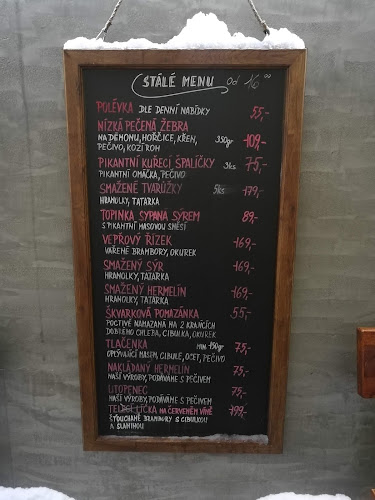 STÁLÉ MENU od 16⁰⁰
POLÉVKA DLE DENNÍ NABÍDKY 55,-
NÍZKÁ PEČENÁ ŽEBRA
NA DÉMONU, HOŘČICE, KŘEN, 350gr 109,-
PEČIVO, KOZÍ ROH
PIKANTNÍ KUŘECÍ ŠPALÍČKY 3ks 75,-
PIKANTNÍ OMÁČKA, PEČIVO
SMAŽENÉ TVARŮŽKY 5ks 179,-
HRANOLKY, TATARKA
TOPINKA SYPANÁ SÝREM 89,-
S PIKANTNÍ MASOVOU SMĚSÍ
VEPŘOVÝ ŘÍZEK 169,-
VAŘENÉ BRAMBORY, OKUREK
SMAŽENÝ SÝR 169,-
HRANOLKY, TATARKA
SMAŽENÝ HERMELÍN 169,-
HRANOLKY, TATARKA
ŠKVARKOVÁ POMAZÁNKA 55,-
POCTIVĚ NAMAZANÁ NA 2 KRAJÍCÍCH
DOBRÉHO CHLEBA, CIBULKA, OKUREK
TLAČENKA MIN. 150gr 75,-
OPLÝVAJÍCÍ MASEM, CIBULE, OCET, PEČIVO
NAKLÁDANÝ HERMELÍN 75,-
NAŠÍ VÝROBY, PODÁVÁME S PEČIVEM
UTOPENEC 75,-
NAŠÍ VÝROBY, PODÁVÁME S PEČIVEM
LÍČKA NA ČERVENÉM VÍNĚ 199,-
ŠŤOUCHANÉ BRAMBORY S CIBULKOU
A SLANINOU